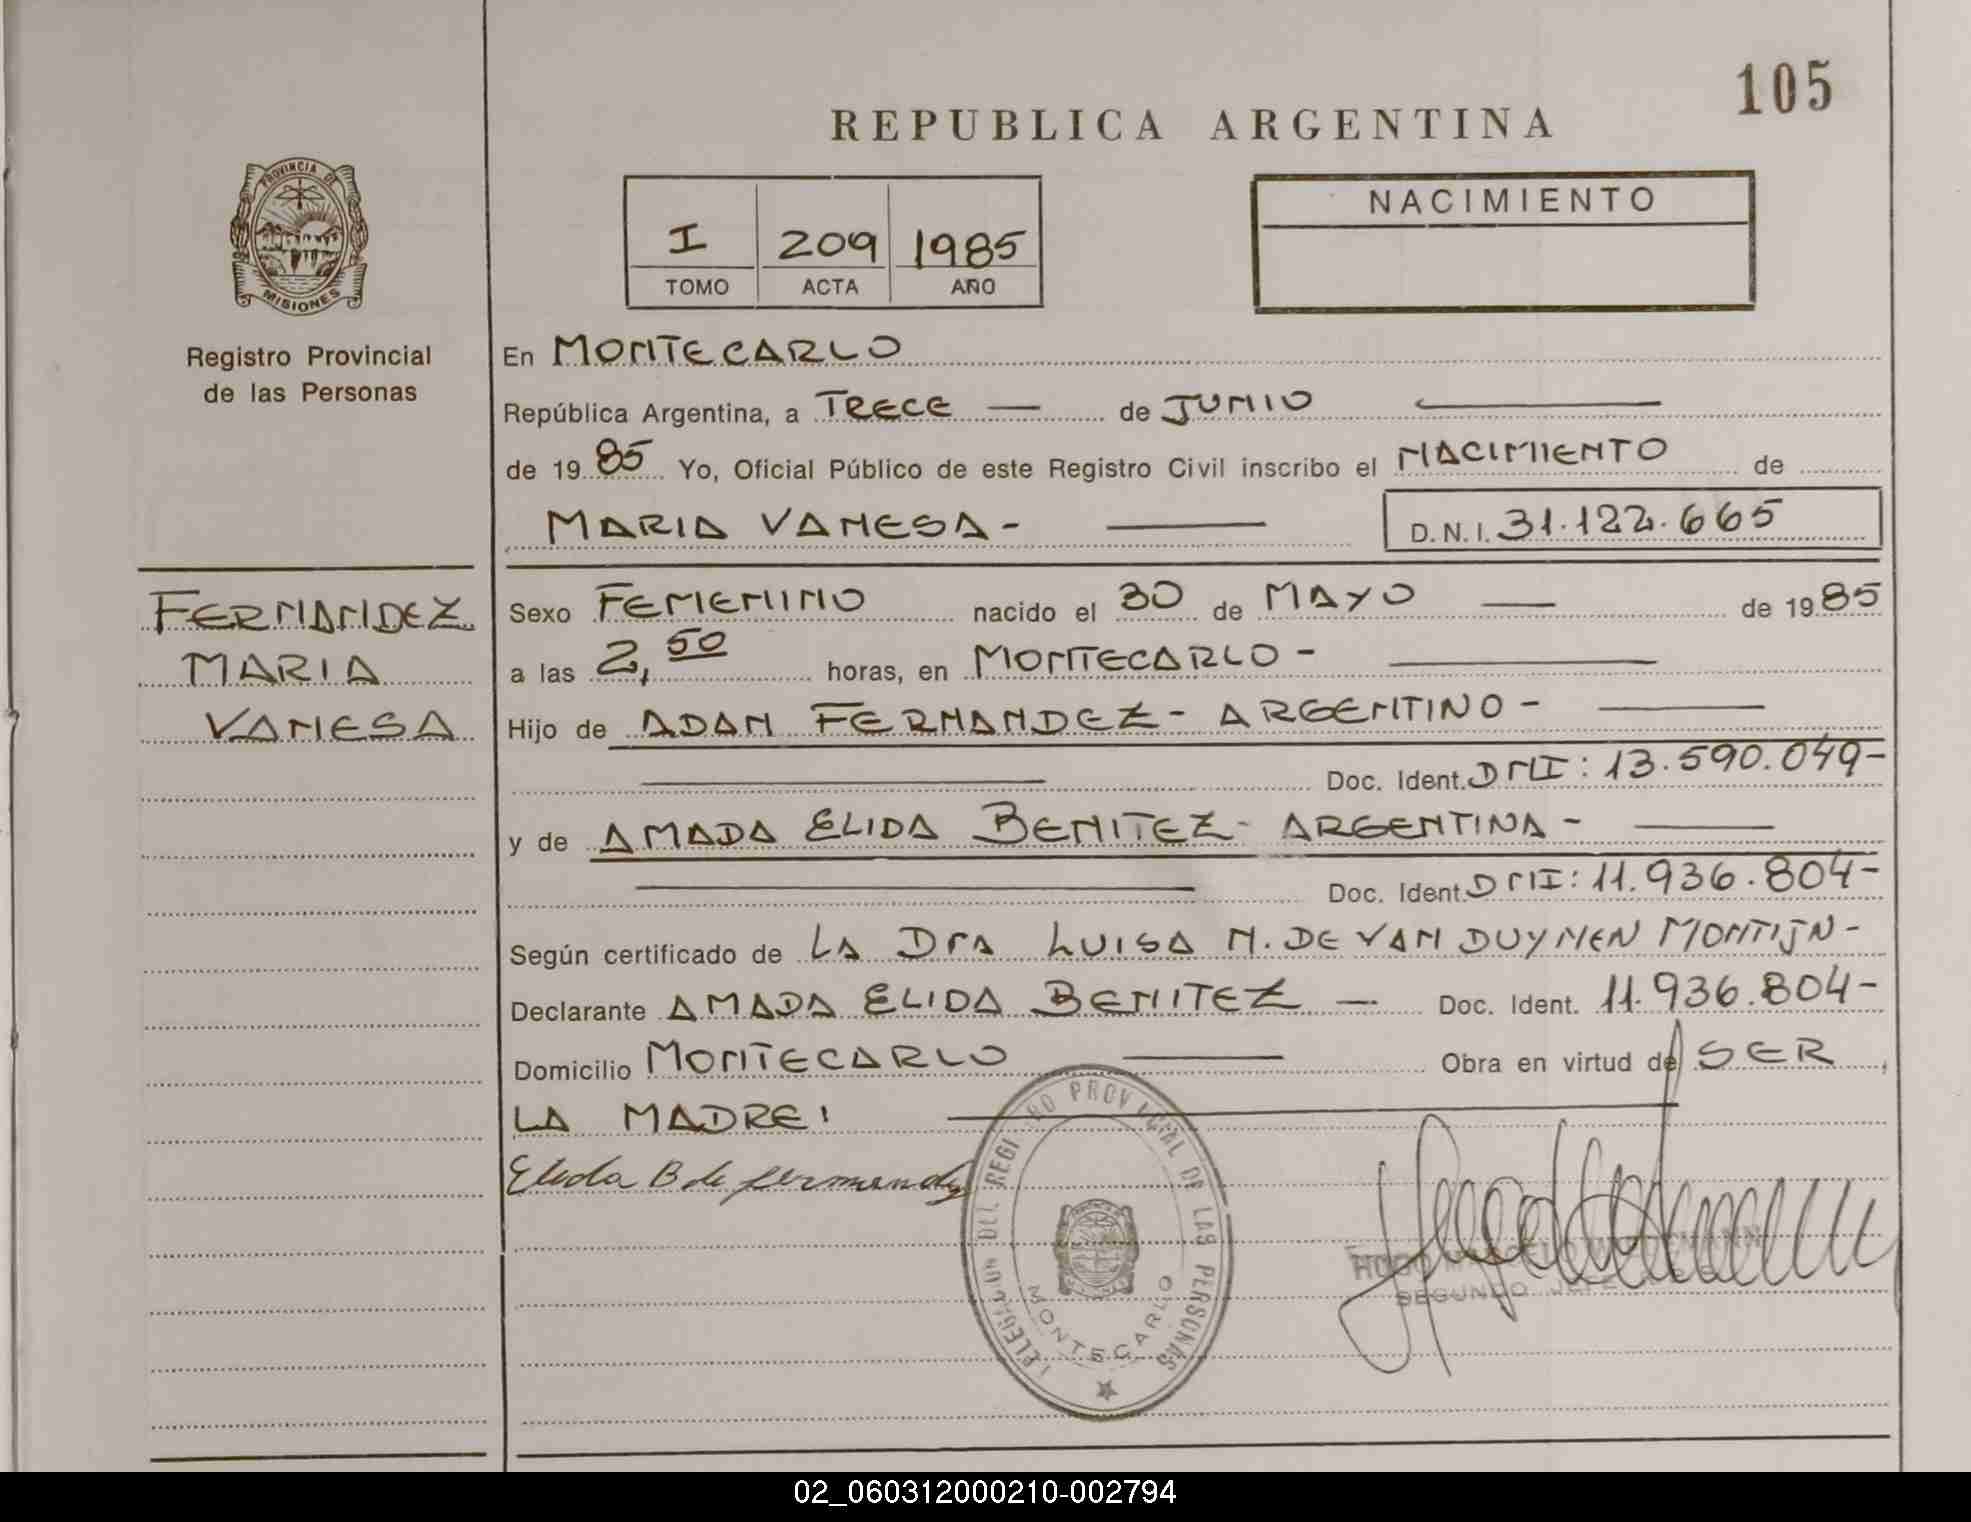 105
REPUBLICA ARGENTINA
PROVINCIA DE
MISIONES
Registro Provincial
de las Personas
I 209 1985
TOMO ACTA AÑO
NACIMIENTO
En MONTECARLO
República Argentina, a TRECE — de JUNIO —
de 1985 Yo, Oficial Público de este Registro Civil inscribo el NACIMIENTO de
MARIA VANESA - —
D.N.I. 31.122.665
FERNANDEZ
MARIA
VANESA
Sexo FEMENINO nacido el 30 de MAYO — de 1985
a las 2,50 horas, en MONTECARLO - —
Hijo de ADAN FERNANDEZ - ARGENTINO - —
— Doc. Ident. DNI: 13.590.049-
y de AMADA ELIDA BENITEZ - ARGENTINA - —
— Doc. Ident. DNI: 11.936.804-
Según certificado de LA DRA LUISA N. DE VAN DUYNEN MONTIJN -
Declarante AMADA ELIDA BENITEZ — Doc. Ident. 11.936.804-
Domicilio MONTECARLO — Obra en virtud de SER
LA MADRE! —
Elida B de Fernandez
DELEGACION DEL REGISTRO PROVINCIAL DE LAS PERSONAS
MONTECARLO
HUGO MARCELO
SEGUNDO JEFE
02_060312000210-002794